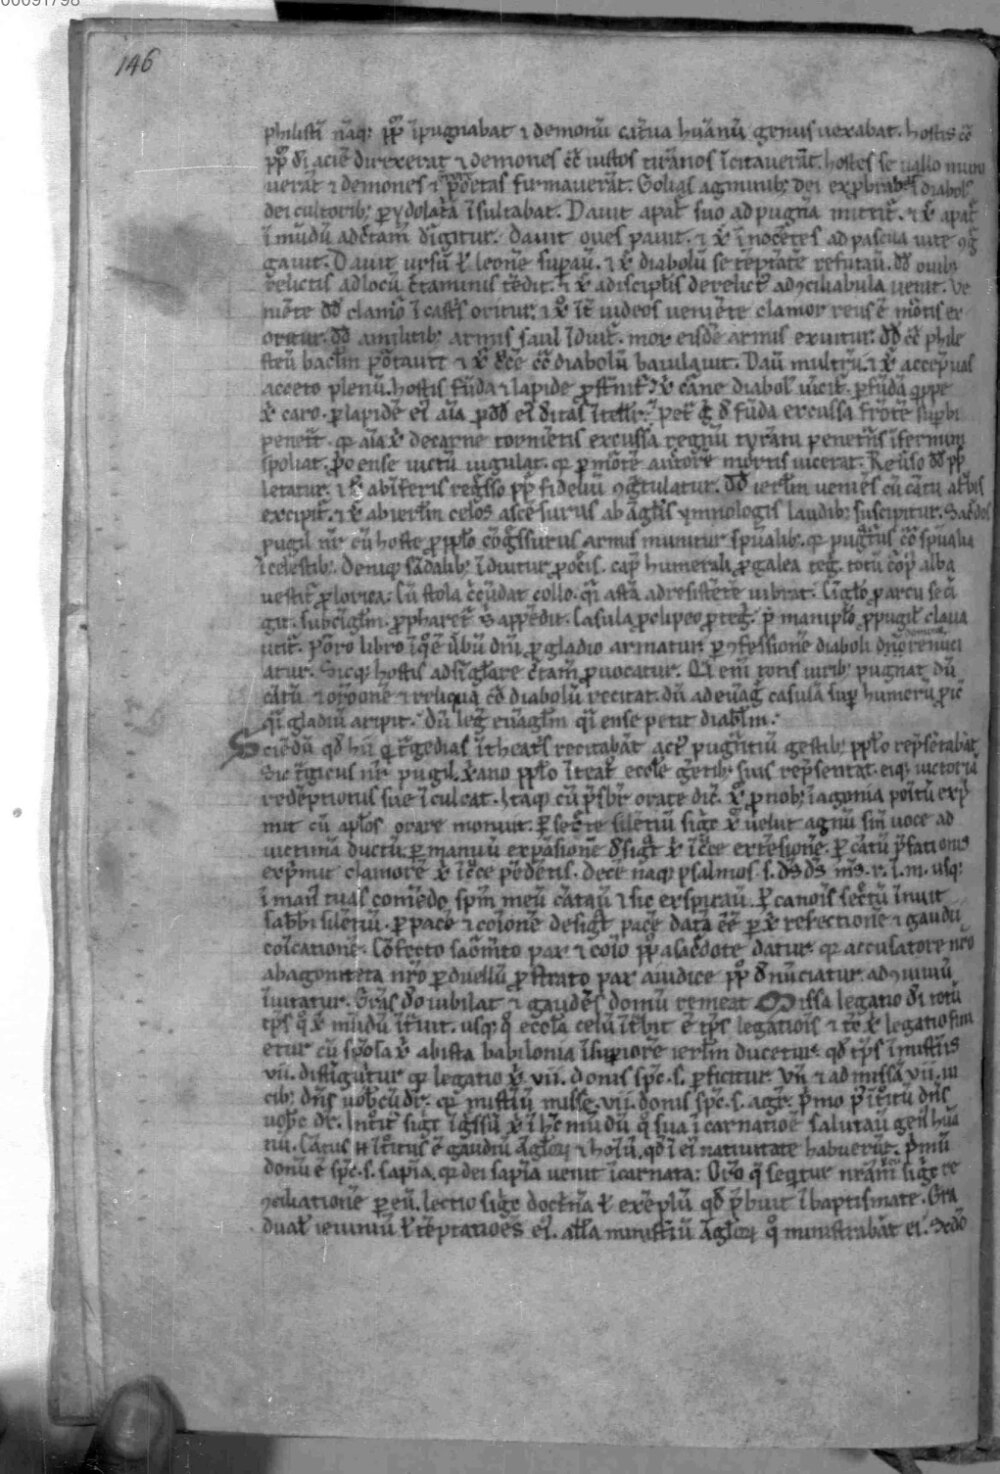 00091798
146
philistī nāq; ppł̄ īpugnabat ⁊ demonū cat̄ua huānū genus uexabat. hostis cō
pp̄ dī aciē direxerat ⁊ demones cō iustos tirānos īcitauerāt. hostes se uallo muni
uerāt ⁊ demones ⁊ poetas firmauerāt. Golias agminib; dei exprobrabat ⁊ diabol'
dei cultorib; p ydolatā īsultabat. Dauit apat̄ suo ad pugnā mittit̄. ⁊ x̄ apat̄
ī mūdū ad c̄tam̄ dīgitur. dauit oues pauit. ⁊ x̄ īnocētes ad pascua uite ꝯḡ
gauit. Dauit ursū ł leonē supau̅. ⁊ x̄ diabolū se tēptātē refutau̅. dd̄ ouib;
relictis ad locū c̄taminis tēdit. ⁊ x̄ a disciplis derelict̄ ad ꝯciliabula uenit. Ve
niēte dd̄ clamor ī castris oritur. ⁊ x̄ iudeos ueniēte clamor reus ē mōtis ex
oritur. dd̄ a militib; armis saul īduit̄. mox eisdē armis exuitur. dd̄ cō phile
steū baclm̄ portauit ⁊ x̄ c̄cē cō diabolū baiulauit. Dau̅ mulctrū. ⁊ x̄ accep̄ uas
aceto plenū. hostis fūda ⁊ lapide p̄stnit̄. x̄ carne diabol' uicit. p fūdā q̄ppe
x̄ caro. p lapidē ei' aīa
penetr̄. q̄ aīa x̄ de carne tormētis excussa regnū tyrāni penetrās īfernum
spoliat. p̄o ense uictū iugulat. q̄ p mōtē auctorē mortis uicerat. Reūso dd̄ pp̄
letatur. ⁊ x̄ ab īferis reg̃sso pp̄ fideliū ꝯg̃tulatur. dd̄ ierl̄m ueniēs cū cātu
excipit̄. ⁊ x̄ ab ierl̄m celos ascēsurus ab āgl̄is ymnologis laudib; suscipitur. Sac̄dos
pugil nr̄ cū hoste p pplo cōg̃ssurus armis munitur sp̄ualib;. q̄ pug̃turus cō sp̄ualia
ī celestib;. deniq; sādalib; īduitur p ocis. cap̄ humerali p galea teg̃. totū corp̄ alba
uestit̄ p lorica. Cū stola c̄cūdat collo. q̄i astā ad resistētē uibrat. Cīglo p arcu se cī
git. subcīgl̄m. p pharet̄ S appēdit. Casula p clipeo p̄teg̃. p̄ maniplo p pugil' claua
utit̄. Porro libro ī q̄ ē ūbū dn̄i. p gladio armatur p ꝯfessionē diaboli dn̄o renuci
atur. Sicq; hostis ad sīglare c̄tam̄ p̄uocatur. Qi em̄ totis uirib; pugnat dū
cātū ⁊ or̄onē ⁊ reliqua cō diabolū recitat. dū ad euāg̃ casulā sup̄ humerū p̄ic̄
q̄i gladiū aripit. dū leg̃ euāgl̄m q̄i ense petit diabl̄m.
Sciēdū qd̄ hii q̄ t̄gedias ī theatis recitabāt act' pugnātiū gestib; pplo rep̄sētabāt.
Sic t̄gicus nr̄ pugil. x̄ano pplo ī teat̄ eccl̄e gestib; suis rep̄sentat. eiq; uictoriā
redēptionis sue īculcat. Itaq; cū p̄sbr̄ orate dic̄. x̄ p̄ nob; ī agonia poītū exp̄
mit cū aplos orare monuit. P sec̄te silētiū sig̃t x̄ uelut agnū sin̄ uoce ad
uictimā ductū. p manuū expāsionē d̄sig̃t x̄ ī c̄ce extēsionē. p cātū p̄fationis
exp̄mit clamorē x̄ ī c̄ce pēdētis. decē naq; psalmos .s. d̄s d̄s m̄s. r. ī. m. usq;
ī man' tuas comēdo spm̄ meū cātau̅ ⁊ sic exspirau̅. P canois sec̄tū īnuit
sabb̄i silētiū. p pacē ⁊ coīonē desig̃t pacē datā ēē p x̄ refectionē ⁊ gaudii
coīcationē. Cōfecto sac̄mto pax ⁊ coīo pp̄ a sac̄dote datur. q̄ accusatore nr̄o
ab agonitheta nr̄o p duellū p̄strato pax a iudice pp̄ d̄nūciatur. ad ꝯuiuiū
īuitatur. G̃ras d̄o iubilat ⁊ gaudēs domū remeat Missa legatio dī totū
tp̄s q̄ x̄ mūdū ītuit. usq; q̄ eccl̄a celū ītbit ē tp̄s legationis ⁊ tē x̄ legatio fini
etur cū spōsa x̄ ab ista babilonia ī supiorē ierl̄m ducetur. qd̄ tp̄s ī mistiis
vii. distīguitur q̄ legatio x̄. vii. donis sp̄c. s. p̄ficitur. Vn̄ ⁊ ad missā vii. ui
cib; dn̄s uob̄cū dr̄. q̄ mistiū misse. vii. donis sp̄c. s. agr̄. p̄mo p̄ ītitū dn̄s
uob̄c dr̄. Intit̄ sig̃t īg̃ssū x̄ ī hc̄ mūdū q̄ sua ī carnatioē saluau̅ gen' hūa
nū. Cātus ītitus ē gaudiū āglor̄ ⁊ hoīū. qd̄ ī ei' natiuitate habuerūt. p̄mū
donū ē sp̄c. s. sapīa. q̄ dei sapīa uenit īcarnata. Or̄o q̄ seqitur nr̄am sig̃t re
ꝯciliationē p eū. lectio sig̃t doct̄nā ł exēplū qd̄ p̄buit ī baptismate. Gra
dual' ieiuniū ł tēptationēs ei'. all̄a ministiū āglor̄ q̄ ministrabāt ei. Secdō